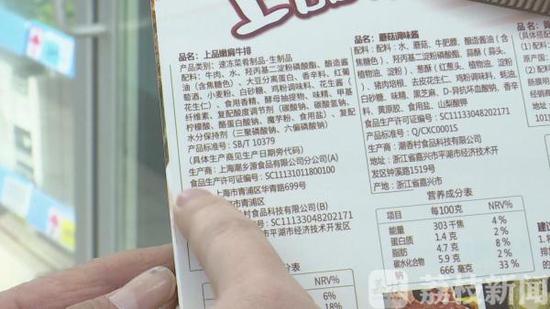 品名：上品嫩肩牛排
产品类别：速冻菜肴制品-生制品
配料：牛肉、水、羟丙基二淀粉磷酸酯、酿造酱
油（含焦糖色）、大豆分离蛋白、香辛料、红葡
萄酒、小麦粉、白砂糖、鸡粉调味料、花生酱（
花生仁）、食用香精、酵母抽提物、味精、甲基
纤维素、复配酸度调节剂（碳酸钠、碳酸氢钠、
柠檬酸、酪蛋白酸钠、魔芋粉、食用盐、复配
水分保持剂（三聚磷酸钠、六偏磷酸钠）
产品标准号：SB/T 10379
（具体生产商见生产日期旁代码）
生产商：上海潮乡源食品有限公司分公司(A)
食品生产许可证编号：SC11131011800100
上海市青浦区华青路699号
市青浦区
村食品科技有限公司(B)
SC11133048202171
平湖市经济技术开发区
品名：蘑菇调味酱
配料：水、蘑菇、牛肥膘、酿造酱油（含
焦糖色）、羟丙基二淀粉磷酸酯、蒜酥（蒜头、
植物油、淀粉）、葱酥（红葱头、植物油、淀
粉）、植物油、去皮花生、鸡粉调味料、蚝油、
白砂糖、味精、黑胡椒、D-异抗坏血酸钠、香辛
料、黄原胶、食用盐、山梨酸钾
产品标准号：Q/CXC0001S
食品生产许可证编号：SC11133048202171
生产商：潮香村食品科技有限公司
地址：浙江省嘉兴市平湖市经济技术开
发区钟溪路1519号
产地：浙江省嘉兴市
营养成分表
项目 每100克 NRV%
能量 303千焦 4%
蛋白质 1.4克 2%
脂肪 4.7克 8%
碳水化合物 5.2克 2%
钠 666毫克 33%
NRV%
6%
18%
荔枝新闻